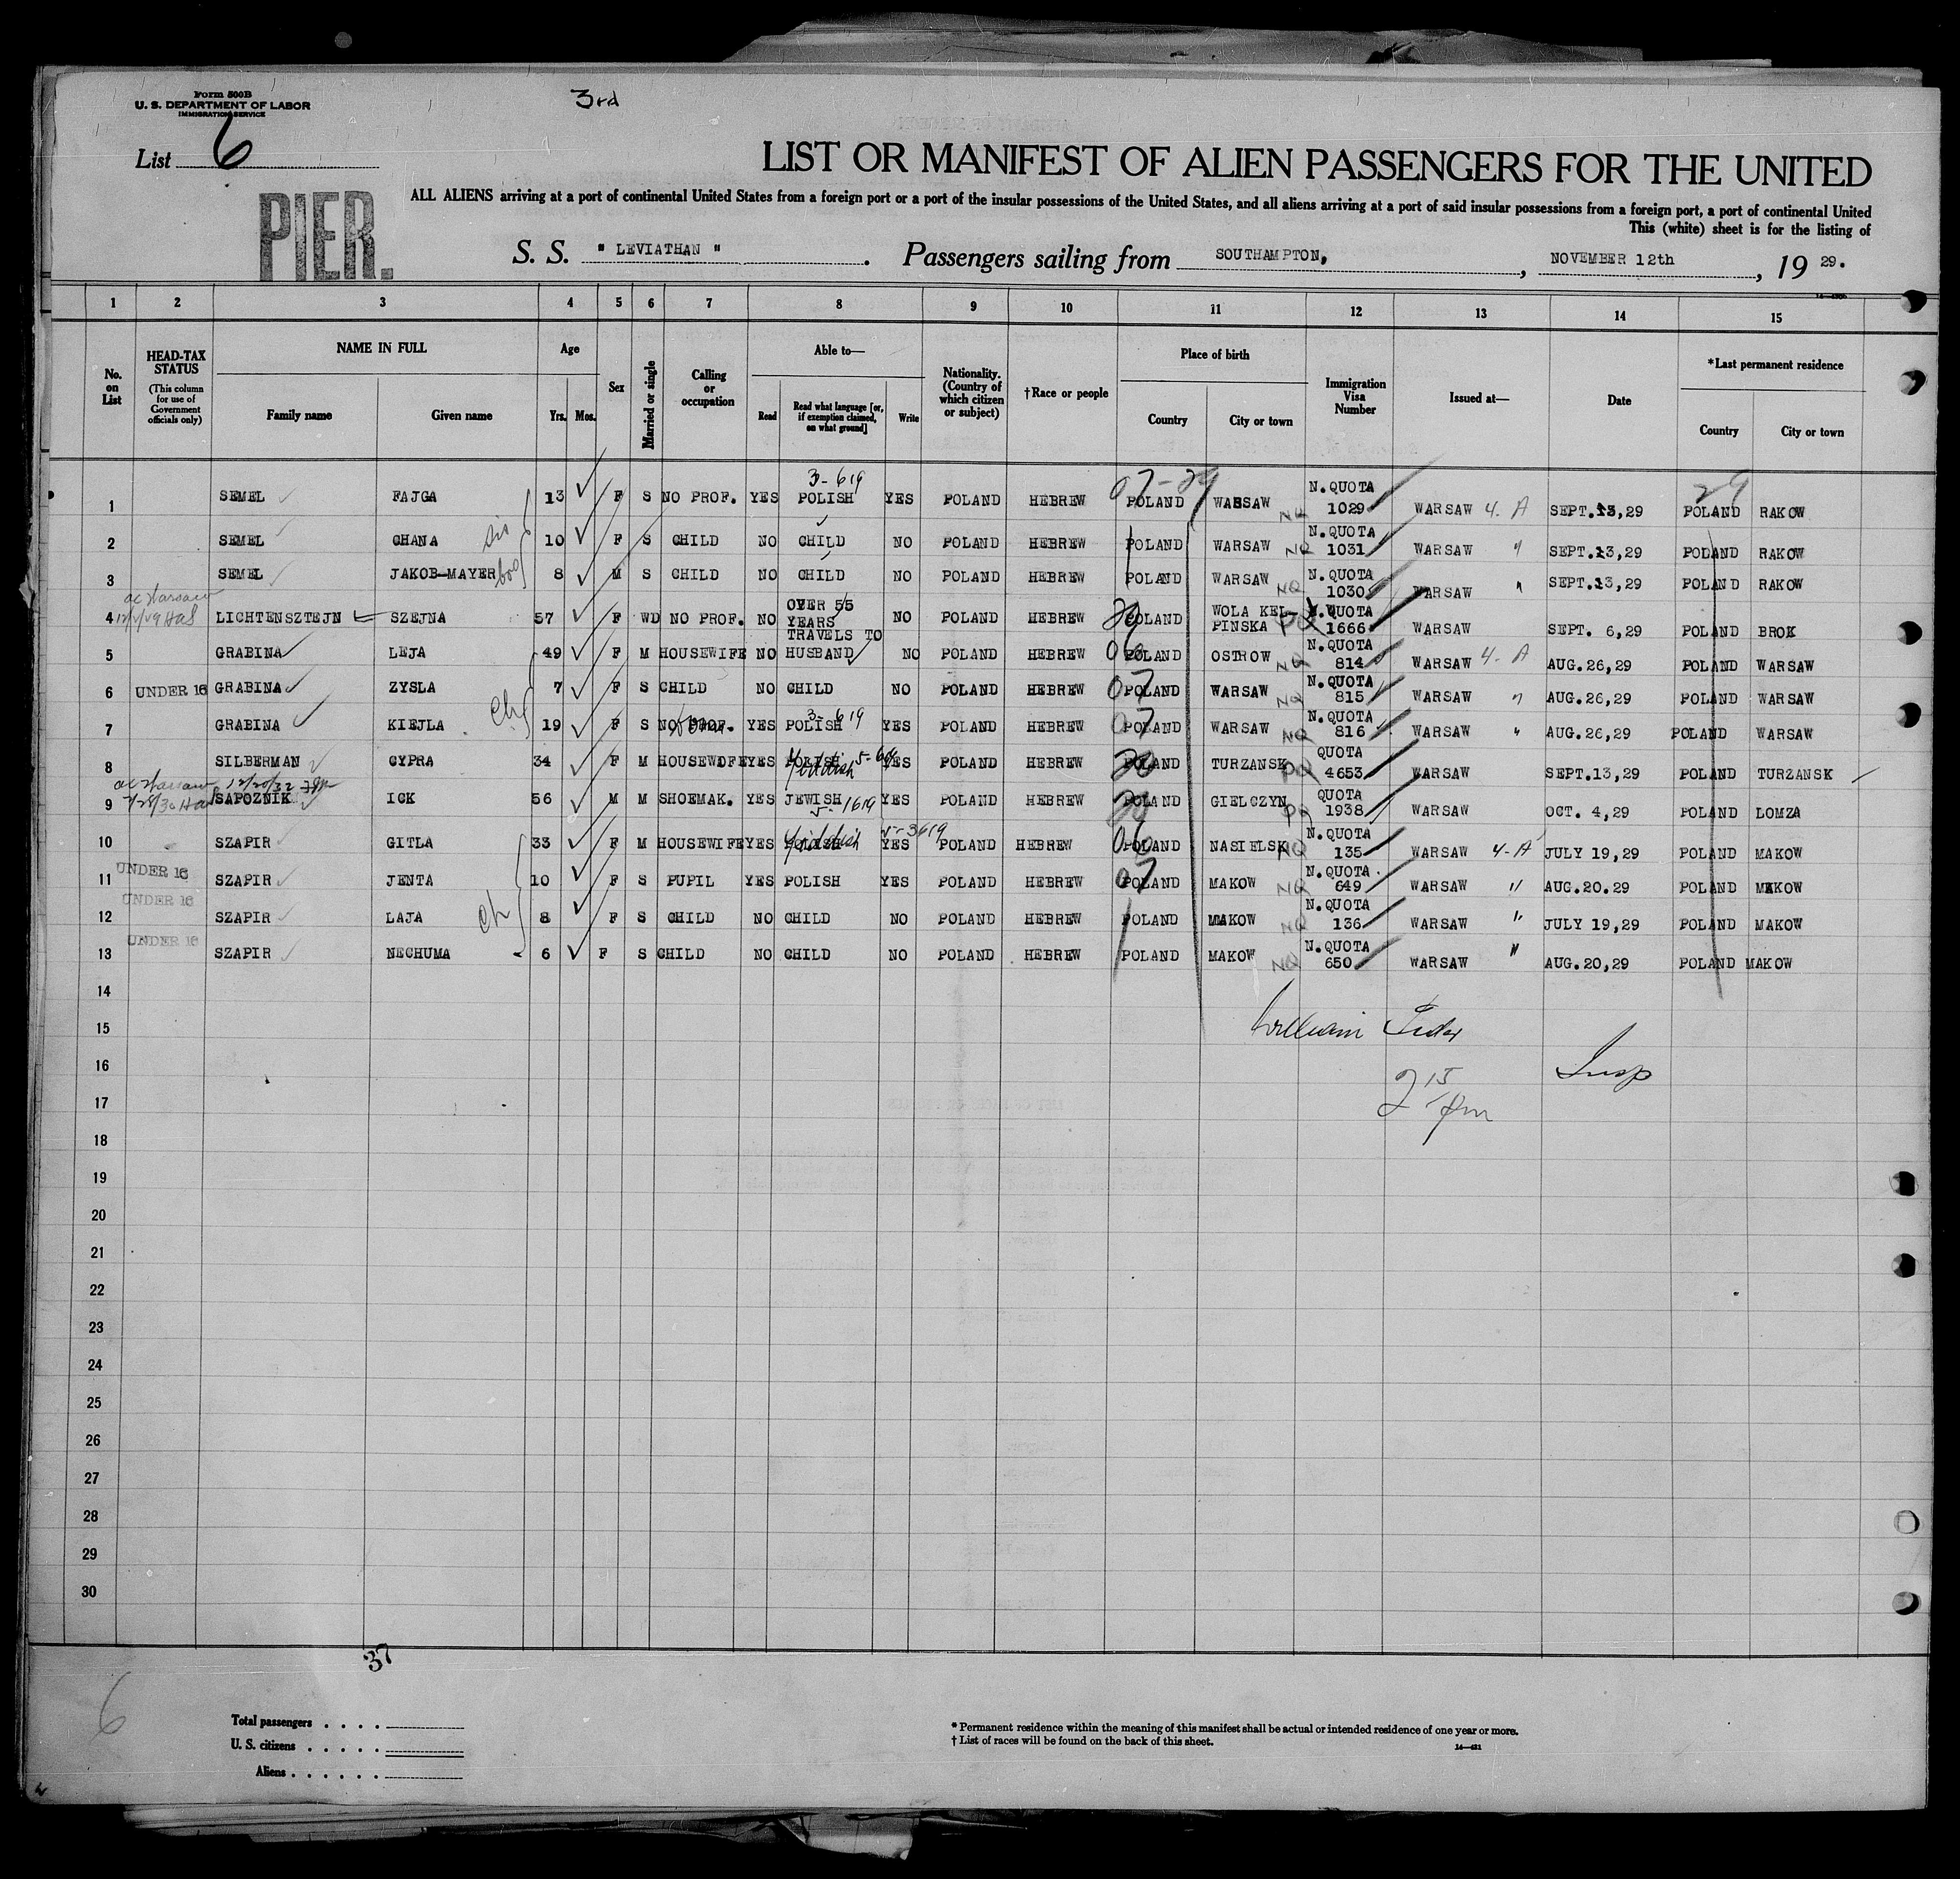 Form 500B
U. S. DEPARTMENT OF LABOR
IMMIGRATION SERVICE
3rd
List 6
LIST OR MANIFEST OF ALIEN PASSENGERS FOR THE UNITED
PIER.
ALL ALIENS arriving at a port of continental United States from a foreign port or a port of the insular possessions of the United States, and all aliens arriving at a port of said insular possessions from a foreign port, a port of continental United
This (white) sheet is for the listing of
S. S. " LEVIATHAN " . Passengers sailing from SOUTHAMPTON, , NOVEMBER 12th , 19 29.
1 2 3 4 5 6 7 8 9 10 11 12 13 14 15
No. on List
HEAD-TAX STATUS
(This column for use of Government officials only)
NAME IN FULL
Family name Given name
Age
Yrs. Mos.
Sex
Married or single
Calling or occupation
Able to—
Read
Read what language [or, if exemption claimed, on what ground]
Write
Nationality. (Country of which citizen or subject)
†Race or people
Place of birth
Country City or town
Immigration Visa Number
Issued at—
Date
*Last permanent residence
Country City or town
3-619 07-29 29
1 SEMEL FAJGA 13 F S NO PROF. YES POLISH YES POLAND HEBREW POLAND WARSAW NQ N.QUOTA 1029 WARSAW 4-A SEPT.13,29 POLAND RAKOW
2 SEMEL CHANA sis 10 F S CHILD NO CHILD NO POLAND HEBREW POLAND WARSAW NQ N.QUOTA 1031 WARSAW " SEPT.13,29 POLAND RAKOW
3 SEMEL JAKOB-MAYER bro 8 M S CHILD NO CHILD NO POLAND HEBREW POLAND WARSAW NQ N.QUOTA 1030 WARSAW " SEPT.13,29 POLAND RAKOW
4 LICHTENSZTEJN SZEJNA 57 F WD NO PROF. NO OVER 55 YEARS NO POLAND HEBREW 29 POLAND WOLA KEL-PINSKA N.QUOTA 1666 WARSAW SEPT. 6,29 POLAND BROK
5 GRABINA LEJA 49 F M HOUSEWIFE NO TRAVELS TO HUSBAND NO POLAND HEBREW 06 POLAND OSTROW NQ N.QUOTA 814 WARSAW 4-A AUG.26,29 POLAND WARSAW
6 UNDER 16 GRABINA ZYSLA ch 7 F S CHILD NO CHILD NO POLAND HEBREW 07 POLAND WARSAW NQ N.QUOTA 815 WARSAW " AUG.26,29 POLAND WARSAW
7 GRABINA KIEJLA 19 F S NO PROF. YES POLISH 3-619 YES POLAND HEBREW 07 POLAND WARSAW NQ N.QUOTA 816 WARSAW " AUG.26,29 POLAND WARSAW
8 SILBERMAN CYPRA 34 F M HOUSEWIFE YES POLISH Yiddish YES POLAND HEBREW POLAND TURZANSK QUOTA 4653 WARSAW SEPT.13,29 POLAND TURZANSK
9 SAPOZNIK ICK 56 M M SHOEMAK. YES JEWISH YES POLAND HEBREW POLAND GIELCZYN QUOTA 1938 WARSAW OCT. 4,29 POLAND LOMZA
10 SZAPIR GITLA 33 F M HOUSEWIFE YES Yiddish YES POLAND HEBREW 06 POLAND NASIELSK NQ N.QUOTA 135 WARSAW 4-A JULY 19,29 POLAND MAKOW
11 UNDER 16 SZAPIR JENTA 10 F S PUPIL YES POLISH YES POLAND HEBREW 07 POLAND MAKOW NQ N.QUOTA 649 WARSAW " AUG.20.29 POLAND MAKOW
12 UNDER 16 SZAPIR LAJA ch 8 F S CHILD NO CHILD NO POLAND HEBREW POLAND MAKOW NQ N.QUOTA 136 WARSAW " JULY 19,29 POLAND MAKOW
13 UNDER 16 SZAPIR NECHUMA 6 F S CHILD NO CHILD NO POLAND HEBREW POLAND MAKOW NQ N.QUOTA 650 WARSAW " AUG.20,29 POLAND MAKOW
14
15 William
16 Insp
17
18
19
20
21
22
23
24
25
26
27
28
29
30
37
6
Total passengers . . . .
U. S. citizens . . . . .
Aliens . . . . . .
* Permanent residence within the meaning of this manifest shall be actual or intended residence of one year or more.
† List of races will be found on the back of this sheet.
14—431